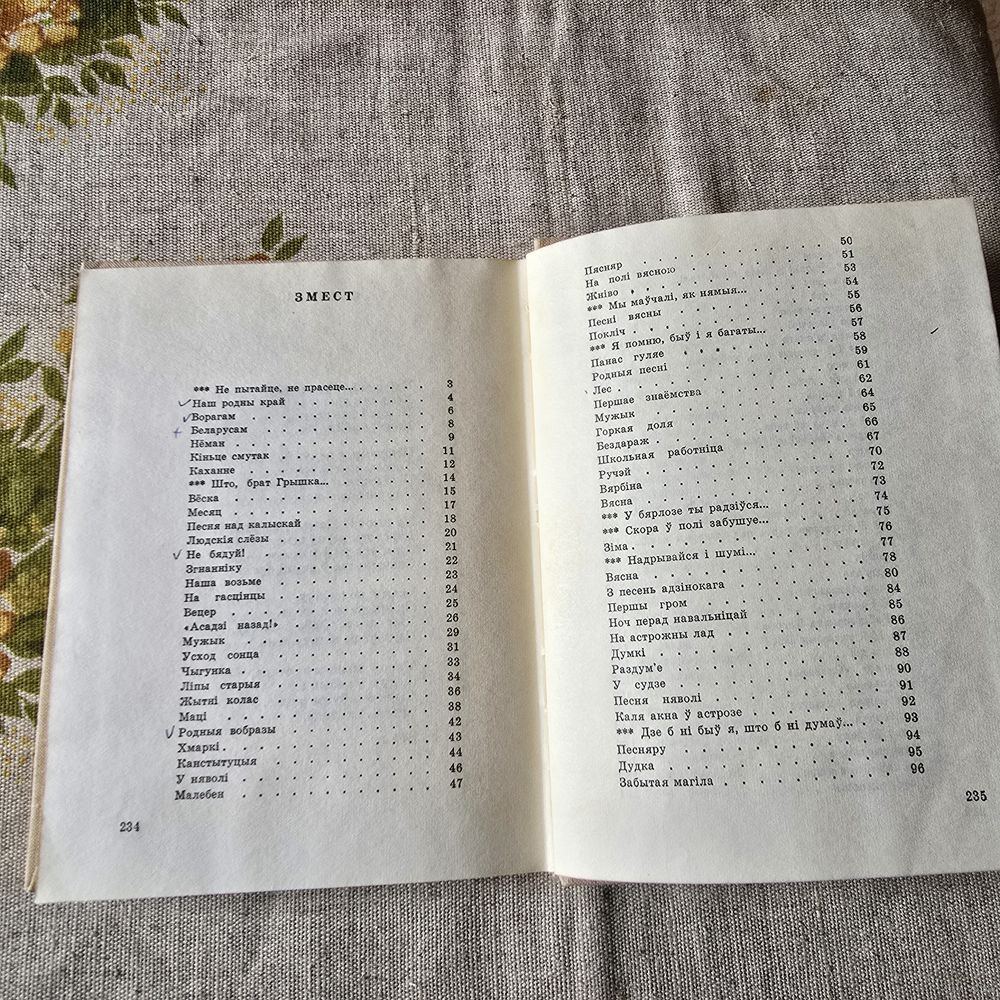 ЗМЕСТ
*** Не пытайце, не прасеце... 3
Наш родны край 4
Ворагам 6
Беларусам 8
Нёман 9
Кіньце смутак 11
Каханне 12
*** Што, брат Грышка... 14
Вёска 15
Месяц 17
Песня над калыскай 18
Людскія слёзы 20
Не бядуй! 21
Згнанніку 22
Наша возьме 23
На гасцінцы 24
Вецер 25
«Асадзі назад!» 26
Мужык 29
Усход сонца 31
Чыгунка 33
Ліпы старыя 34
Жытні колас 36
Маці 38
Родныя вобразы 42
Хмаркі 43
Канстытуцыя 44
У няволі 46
Малебен 47
234
Пясняр 50
На полі вясною 51
Жніво 53
*** Мы маўчалі, як нямыя... 54
Песні вясны 55
Покліч 56
*** Я помню, быў і я багаты... 57
Панас гуляе 58
Родныя песні 59
Лес 61
Першае знаёмства 62
Мужык 64
Горкая доля 65
Бездараж 66
Школьная работніца 67
Ручэй 70
Вярбіна 72
Вясна 73
*** У бярлозе ты радзіўся... 74
*** Скора ў полі забушуе... 75
Зіма 76
*** Надрывайся і шумі... 77
Вясна 78
З песень адзінокага 80
Першы гром 84
Ноч перад навальніцай 85
На астрожны лад 86
Думкі 87
Раздум'е 88
У судзе 90
Песня няволі 91
Каля акна ў астрозе 92
*** Дзе б ні быў я, што б ні думаў... 93
Песняру 94
Дудка 95
Забытая магіла 96
235